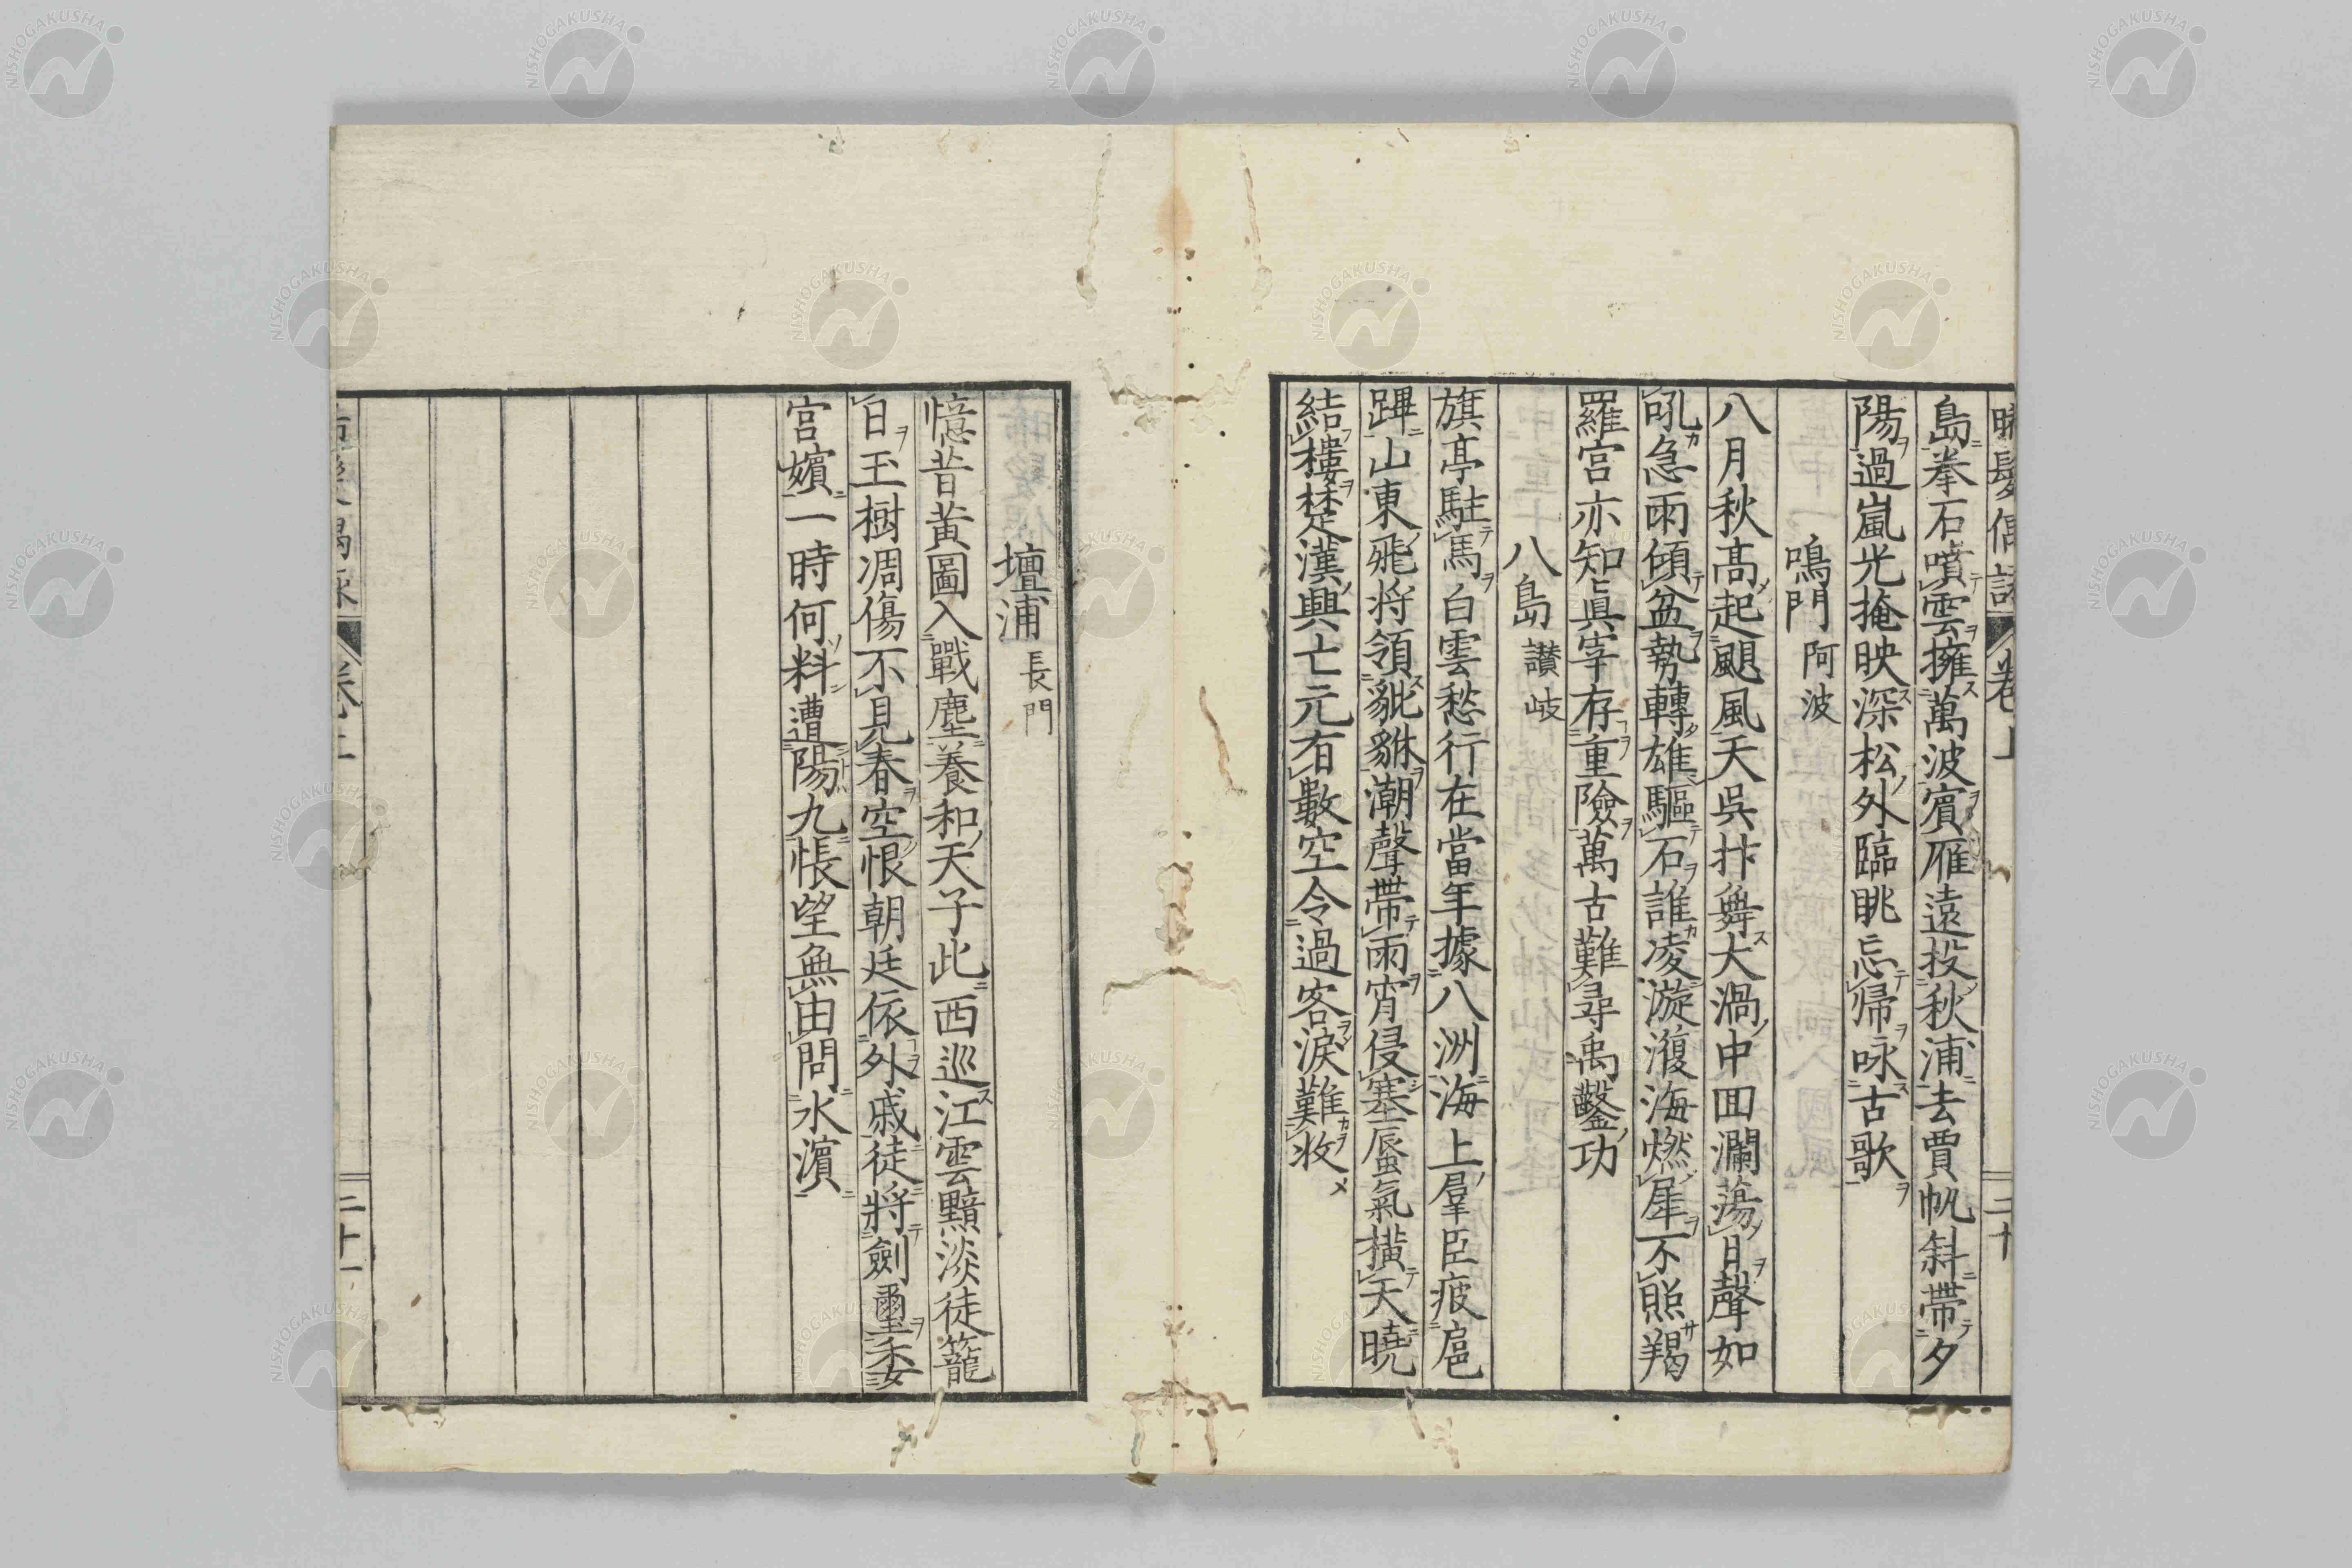 島拳石噴雲擁萬波賓雁遠投秋浦去賈帆斜帶夕
陽過嵐光掩映深松外臨眺忘帰咏古歌
鳴門 阿波
八月秋髙起颶風天呉抃舞大渦中囬瀾蕩日聲如
吼急雨傾盆勢轉雄驅石誰凌漩澓海燃犀不照羯
羅宮亦知眞宰存重險萬古難尋禹鑿功
八島 讃岐
旗亭駐馬白雲愁行在當年據八洲海上羣臣疲扈
蹕山東飛将領貔貅潮聲帶雨宵侵塞蜃氣橫天曉
結樓楚漢興亡元有數空令過客淚難收
壇浦 長門
憶昔黃圖入戰塵養和天子此西巡江雲黯淡徒籠
日玉樹凋傷不見春空恨朝廷依外戚徒將劍璽委
宮嬪一時何料遭陽九悵望無由問水濱
卷上
二十一
NISHOGAKUSHA